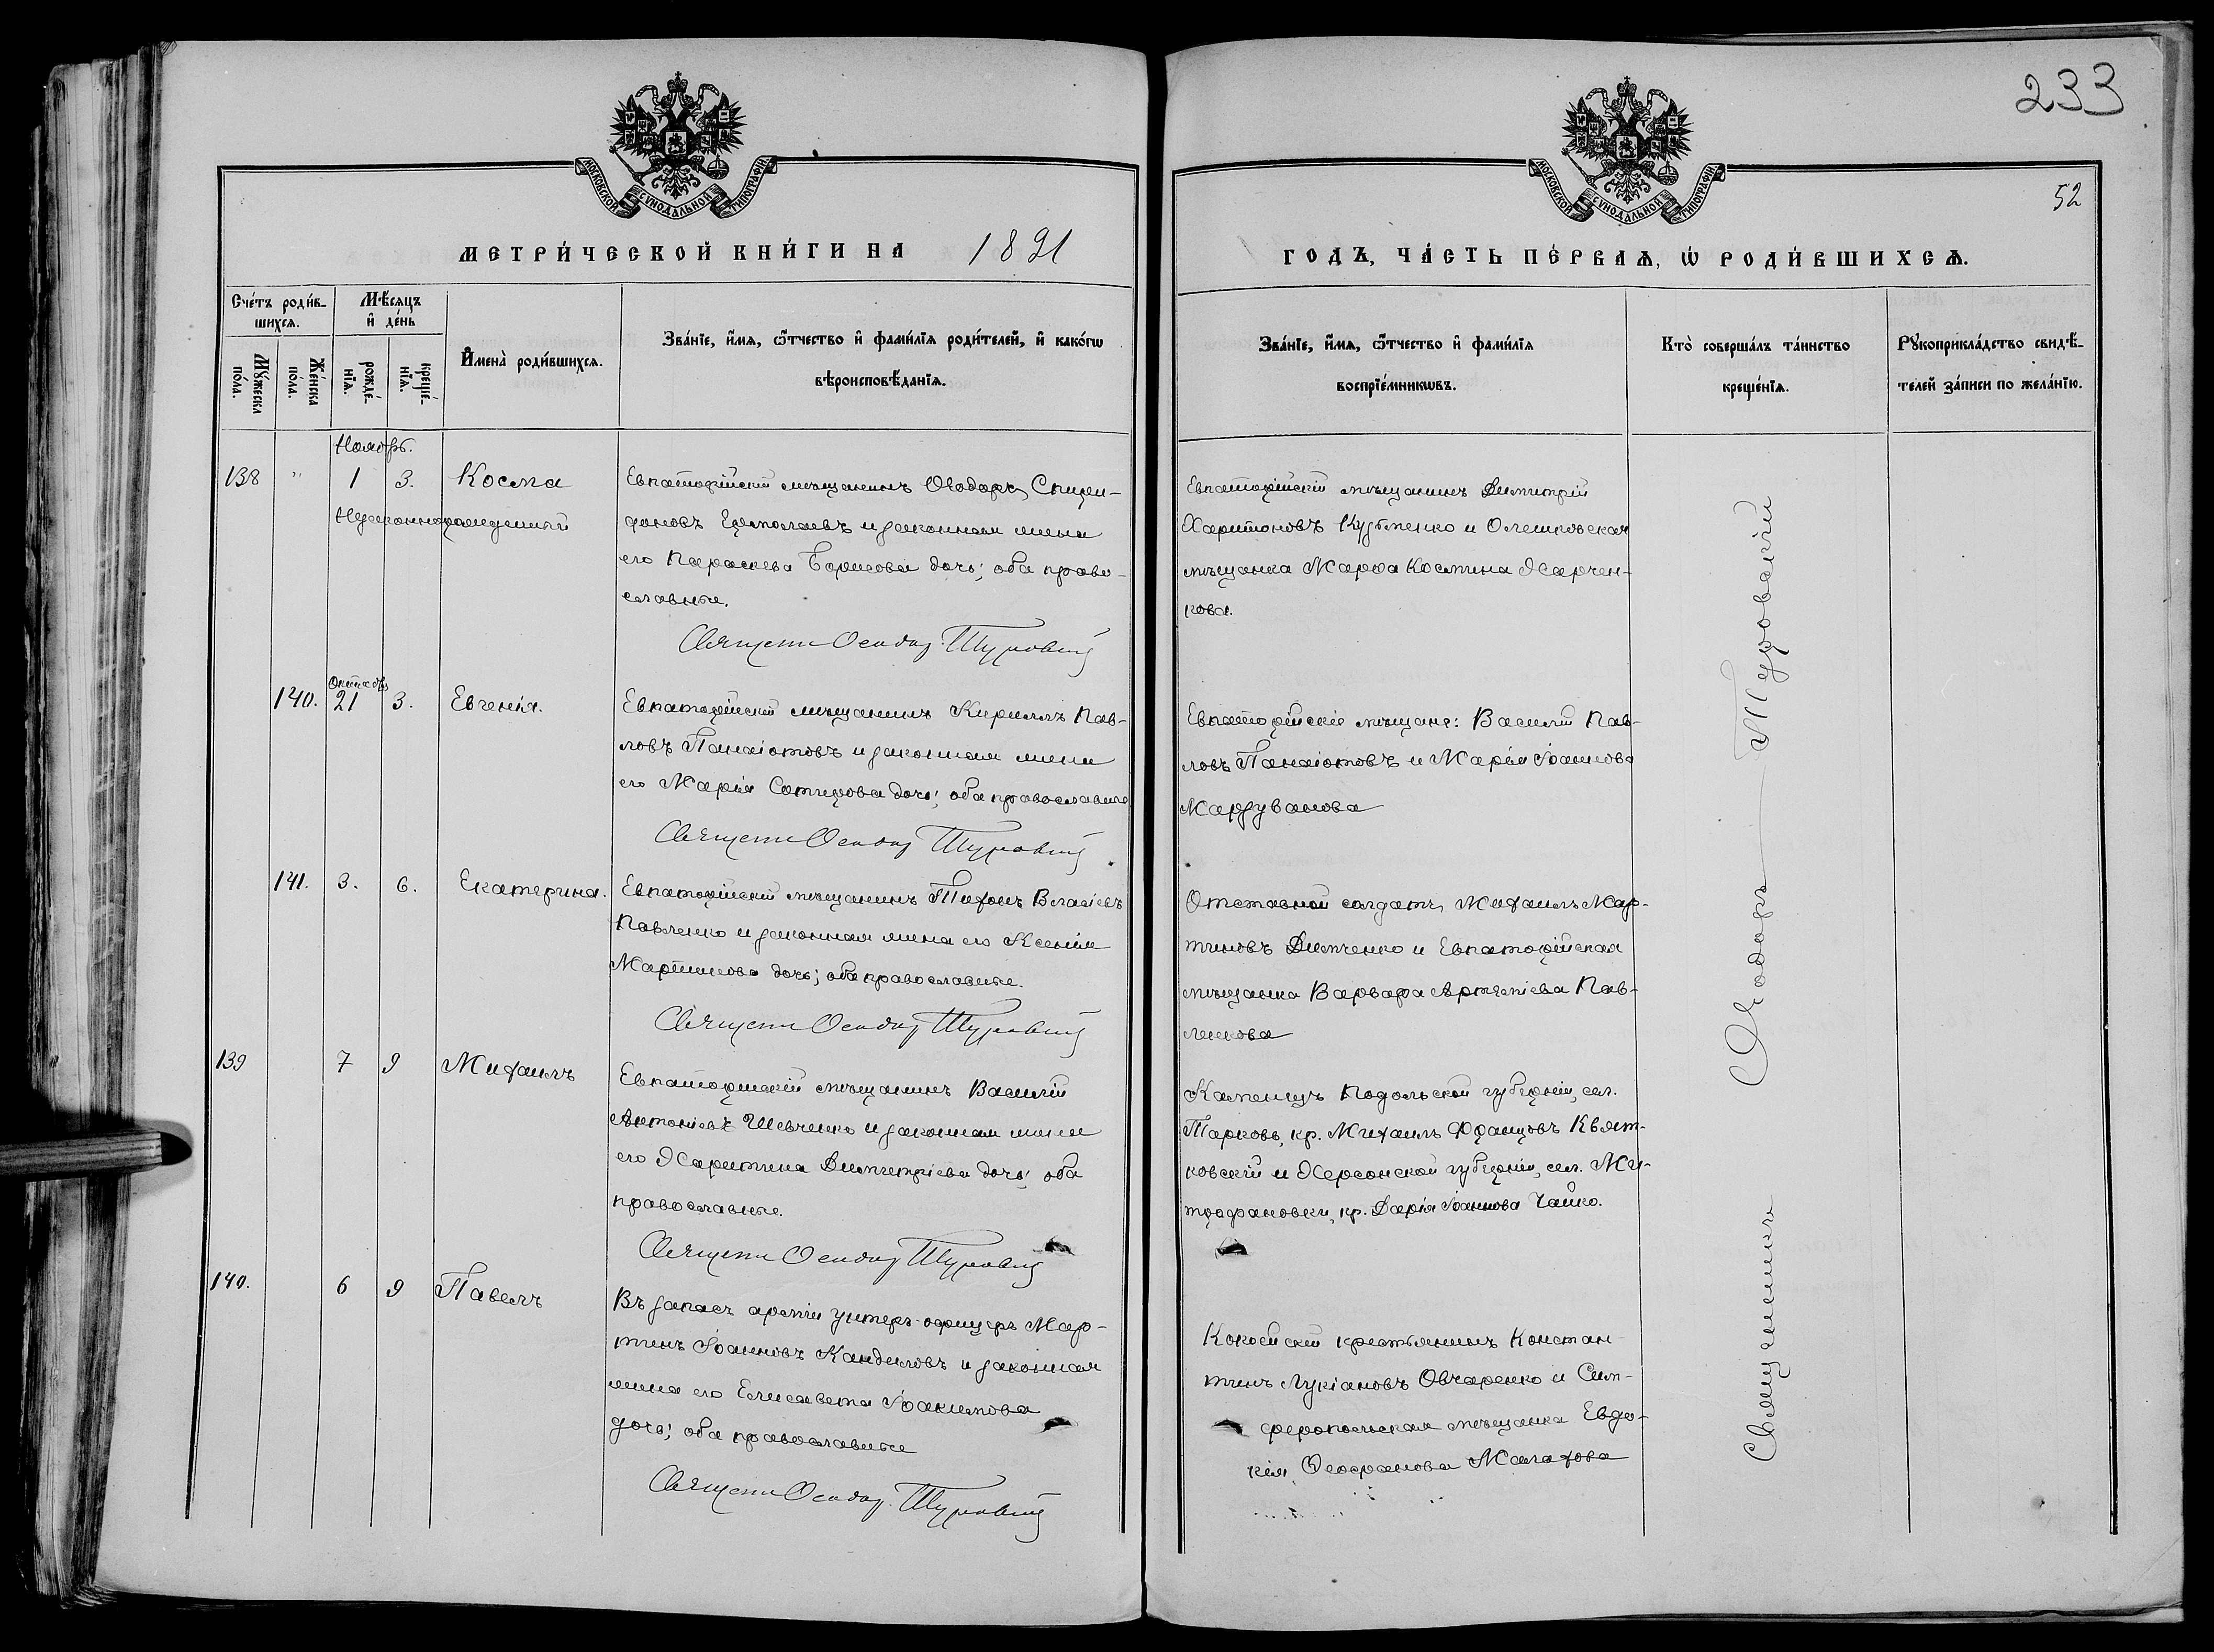 233
МОСКОВСКОЙ СѴНОДАЛЬНОЙ ТИПОГРАФІИ
МОСКОВСКОЙ СѴНОДАЛЬНОЙ ТИПОГРАФІИ
52
МЕТРИ́ЧЕСКОЙ КНИ́ГИ НА 1891
ГОДЪ, ЧА́СТЬ ПЕ́РВАѦ, Ѡ҆ РОДИ́ВШИХСѦ.
Сче́тъ роди́в-
шихсѧ.
Мѣ́сѧцъ
и҆ де́нь
Мꙋ́жеска
по́ла.
Же́нска
по́ла.
рожде́-
нїѧ.
креще́-
нїѧ.
И҆мена̀ роди́вшихсѧ.
Зва́нїе, и҆́мѧ, ѻ҆́тчество и҆ фами́лїѧ роди́телей, и҆ како́гѡ
вѣроисповѣ́данїѧ.
Зва́нїе, и҆́мѧ, ѻ҆́тчество и҆ фами́лїѧ
воспрїе́мникѡвъ.
Кто̀ соверша́лъ та́инство
креще́нїѧ.
Рꙋкоприкла́дство свидѣ́-
телей за́писи по жела́нїю.
Ноябрь.
138 " 1 3. Косма
Незаконнорожденный
Евпаторійскій мѣщанинъ Ѳеодоръ Спири-
доновъ Ермолаевъ и законная жена
его Параскева Борисова дочь; оба право-
славные.
Священн Ѳеодор Туровскій
Евпаторійскій мѣщанинъ Димитрій
Харитоновъ Кузьменко и Олешковская
мѣщанка Марѳа Космина Харчен-
кова.
Октябрь
140. 21 3. Евгенія.
Евпаторійскій мѣщанинъ Кириллъ Пав-
ловъ Панаіотовъ и законная жена
его Марія Сотирова дочь; оба православные
Священн Ѳеодор Туровскій
Евпаторійскіе мѣщане: Василій Пав-
ловъ Панаіотовъ и Марія Іоаннова
Мардуванова
141. 3. 6. Екатерина.
Евпаторійскій мѣщанинъ Тихонъ Власіевъ
Павленко и законная жена его Ксенія
Мартинова дочь; оба православные.
Священн Ѳеодор Туровскій
Отставной солдатъ Михаилъ Мар-
тиновъ Димченко и Евпаторійская
мѣщанка Варвара Артеміева Пав-
ленкова
139 7 9 Михаилъ
Евпаторійскій мѣщанинъ Василій
Антоніевъ Шевченко и законная жена
его Харитина Димитріева дочь; оба
православные.
Священн Ѳеодор Туровскій
Каменецъ Подольской губерніи, сел.
Тарковъ, кр. Михаилъ Францовъ Квят-
ковскій и Херсонской губерніи, сел. Ми-
трофановки, кр. Дарія Іоаннова Чайко.
140. 6 9 Павелъ
Въ запасѣ арміи унтеръ-офицеръ Мар-
тинъ Іоанновъ Канделовъ и законная
жена его Елисавета Іоакимова
дочь; оба православные
Священн Ѳеодор Туровскій
крестьянинъ Констан-
тинъ Лукіановъ Овчаренко и Сим-
феропольская мѣщанка Евдо-
кія Ѳеофанова Малахова
Священникъ Ѳеодоръ Туровскій